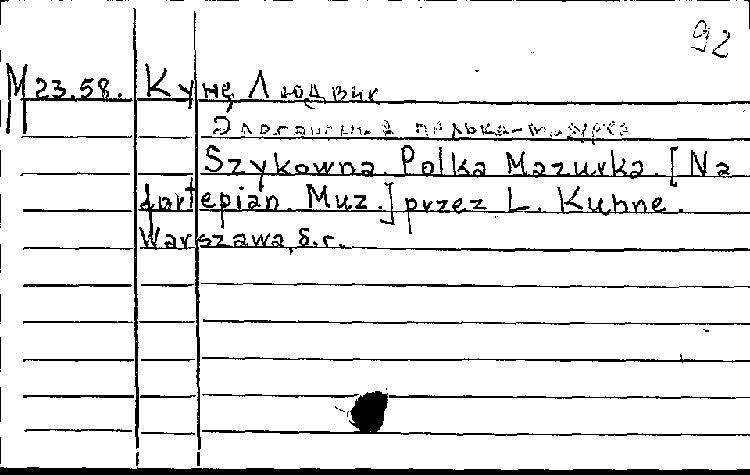 92
M 23.58. Кунę Людвик
Элегантная полька-мазурка
Szykowna. Polka Mazurka. [Na
fortepian. Muz.] przez L. Kuhne.
Warszawa, s.r.